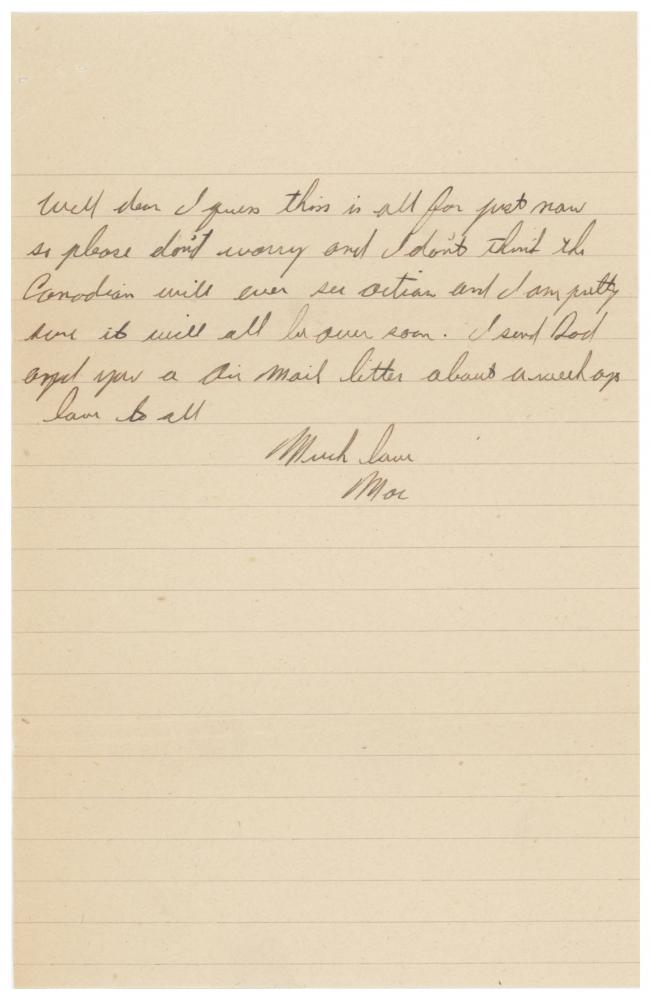 Well dear I guess this is all for just now
so please don't worry and I don't think the
Canadian will ever see action and I am pretty
sure it will all be over soon. I send Dad
and you a Air Mail letter about a week ago
love to all
Much love
Mac